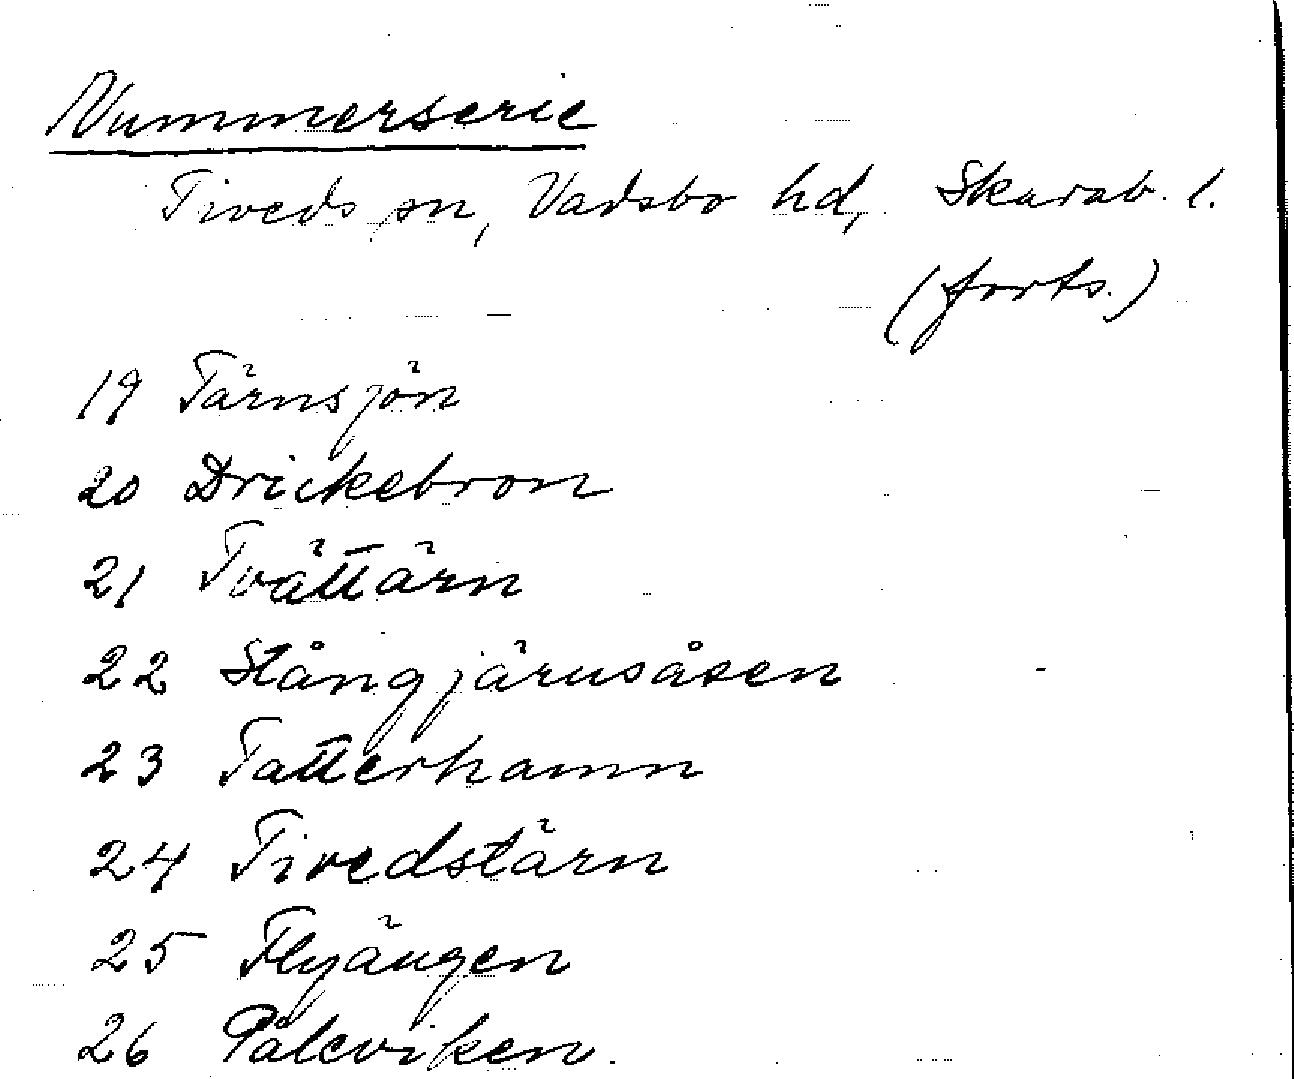 Nummerserie
Tiveds sn, Vadsbo hd, Skarab. l.
(forts.)
19 Tärnsjön
20 Drickebron
21 Tvättärn
22 Stångjärnsåsen
23 Tatterhamn
24 Tivedstärn
25 Flyängen
26 Påleviken.